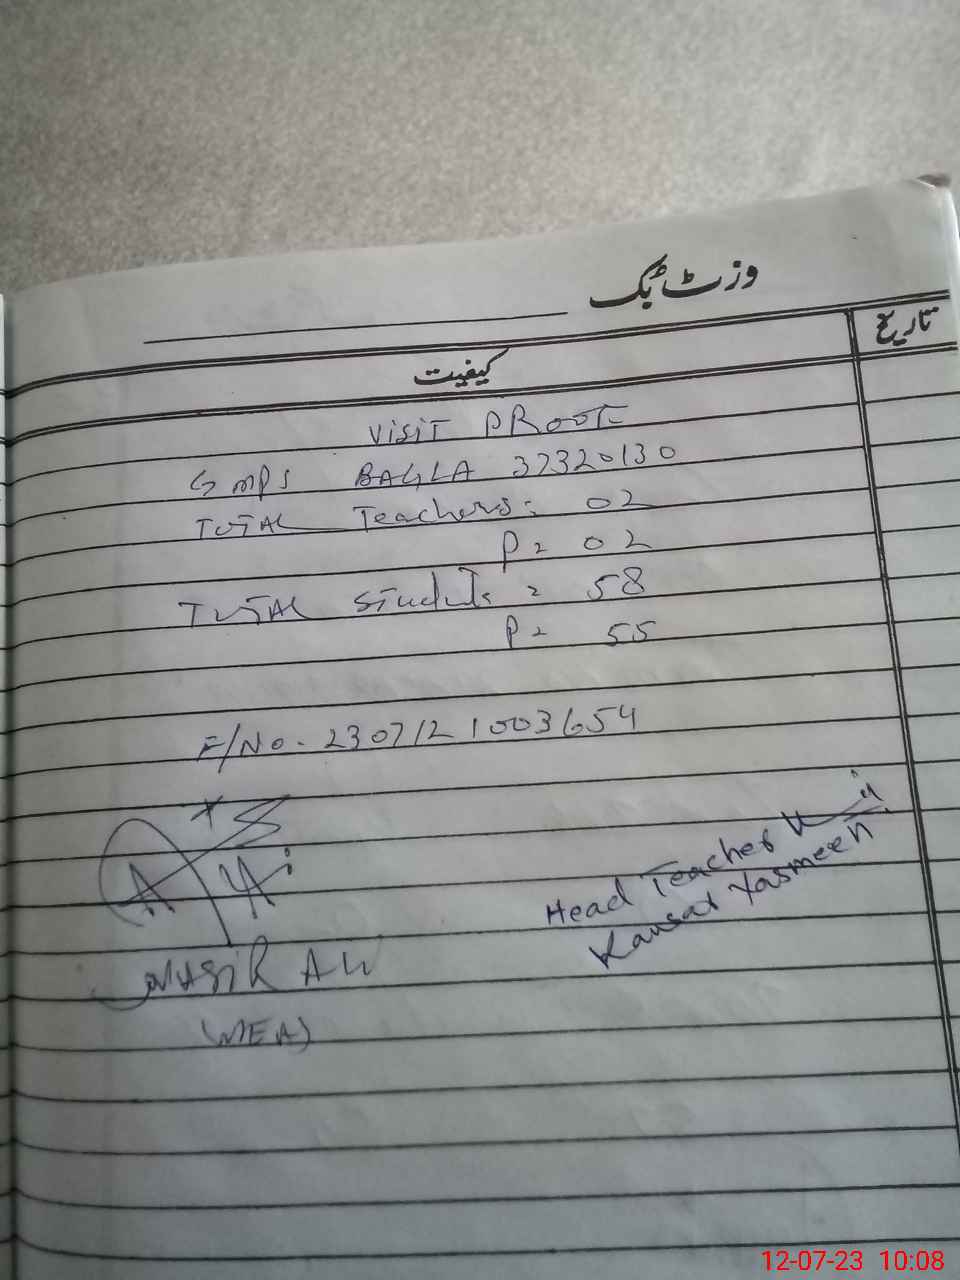 وزٹ بک
تاریخ
کیفیت
VISIT PROOF
GMPS BAGLA 37320130
TOTAL Teachers: 02
P= 02
TOTAL Students = 58
P= 55
F/No. 2307121003654
Head Teacher
Kausar Yasmeen
NASIR ALI
(MEA)
12-07-23 10:08